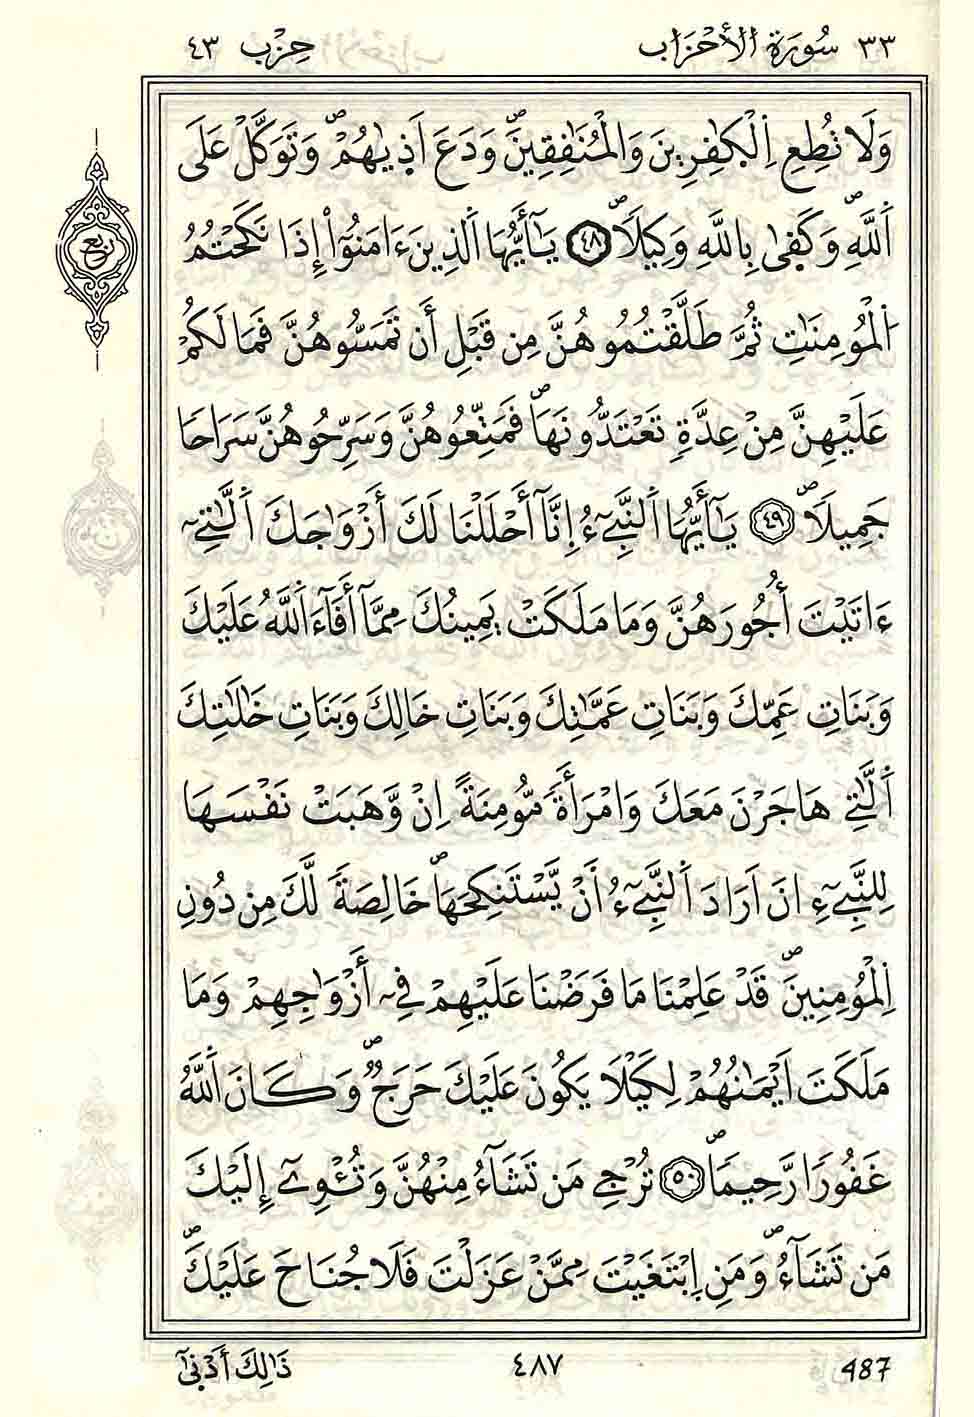 ٣٣ سُورَةُ الأَحْزَاب حِزْب ٤٣
وَلَا تُطِعِ اِ۬لْكٰ۪فِرِينَ وَالْمُنَٰفِقِينَۖ وَدَعَ اَذ۪يٰهُمْۖ وَتَوَكَّلْ عَلَي
ربع
اَ۬للَّهِۖ وَكَف۪يٰ بِاللَّهِ وَكِيلاًۖ ٤٨ يَٰٓأَيُّهَا اَ۬لذِينَ ءَامَنُوٓاْ إِذَا نَكَحْتُمُ
اُ۬لْمُومِنَٰتِ ثُمَّ طَلَّقْتُمُوهُنَّ مِن قَبْلِ أَن تَمَسُّوهُنَّ فَمَا لَكُمْ
عَلَيْهِنَّ مِنْ عِدَّةٖ تَعْتَدُّونَهَاۖ فَمَتِّعُوهُنَّ وَسَرِّحُوهُنَّ سَرَاحاٗ
جَمِيلاٗۖ ٤٩ يَٰٓأَيُّهَا اَ۬لنَّبِےٓءُ إِنَّآ أَحْلَلْنَا لَكَ أَزْوَٰجَكَ اَ۬لَّٰتِےٓ
ءَاتَيْتَ أُجُورَهُنَّ وَمَا مَلَكَتْ يَمِينُكَ مِمَّآ أَفَآءَ اَ۬للَّهُ عَلَيْكَ
وَبَنَاتِ عَمِّكَ وَبَنَاتِ عَمَّٰتِكَ وَبَنَاتِ خَالِكَ وَبَنَاتِ خَٰلَٰتِكَ
اَ۬لَّٰتِے هَاجَرْنَ مَعَكَ وَامْرَأَةٗ مُّومِنَةً اِنْ وَّهَبَتْ نَفْسَهَا
لِلنَّبِےٓءِ انَ اَرَادَ اَ۬لنَّبِےٓءُ اَنْ يَّسْتَنكِحَهَاۖ خَالِصَةٗ لَّكَ مِن دُونِ
اِ۬لْمُومِنِينَۖ قَدْ عَلِمْنَا مَا فَرَضْنَا عَلَيْهِمْ فِےٓ أَزْوَٰجِهِمْ وَمَا
مَلَكَتَ اَيْمَٰنُهُمْ لِكَيْلَا يَكُونَ عَلَيْكَ حَرَجٞۖ وَكَانَ اَ۬للَّهُ
غَفُوراٗ رَّحِيماٗۖ ٥٠ تُرْجِے مَن تَشَآءُ مِنْهُنَّ وَتُـْٔوِےٓ إِلَيْكَ
مَن تَشَآءُۖ وَمَنِ اِ۪بْتَغَيْتَ مِمَّنْ عَزَلْتَ فَلَا جُنَاحَ عَلَيْكَۖ
487 ٤٨٧ ذَٰلِكَ أَدْن۪يٰٓ